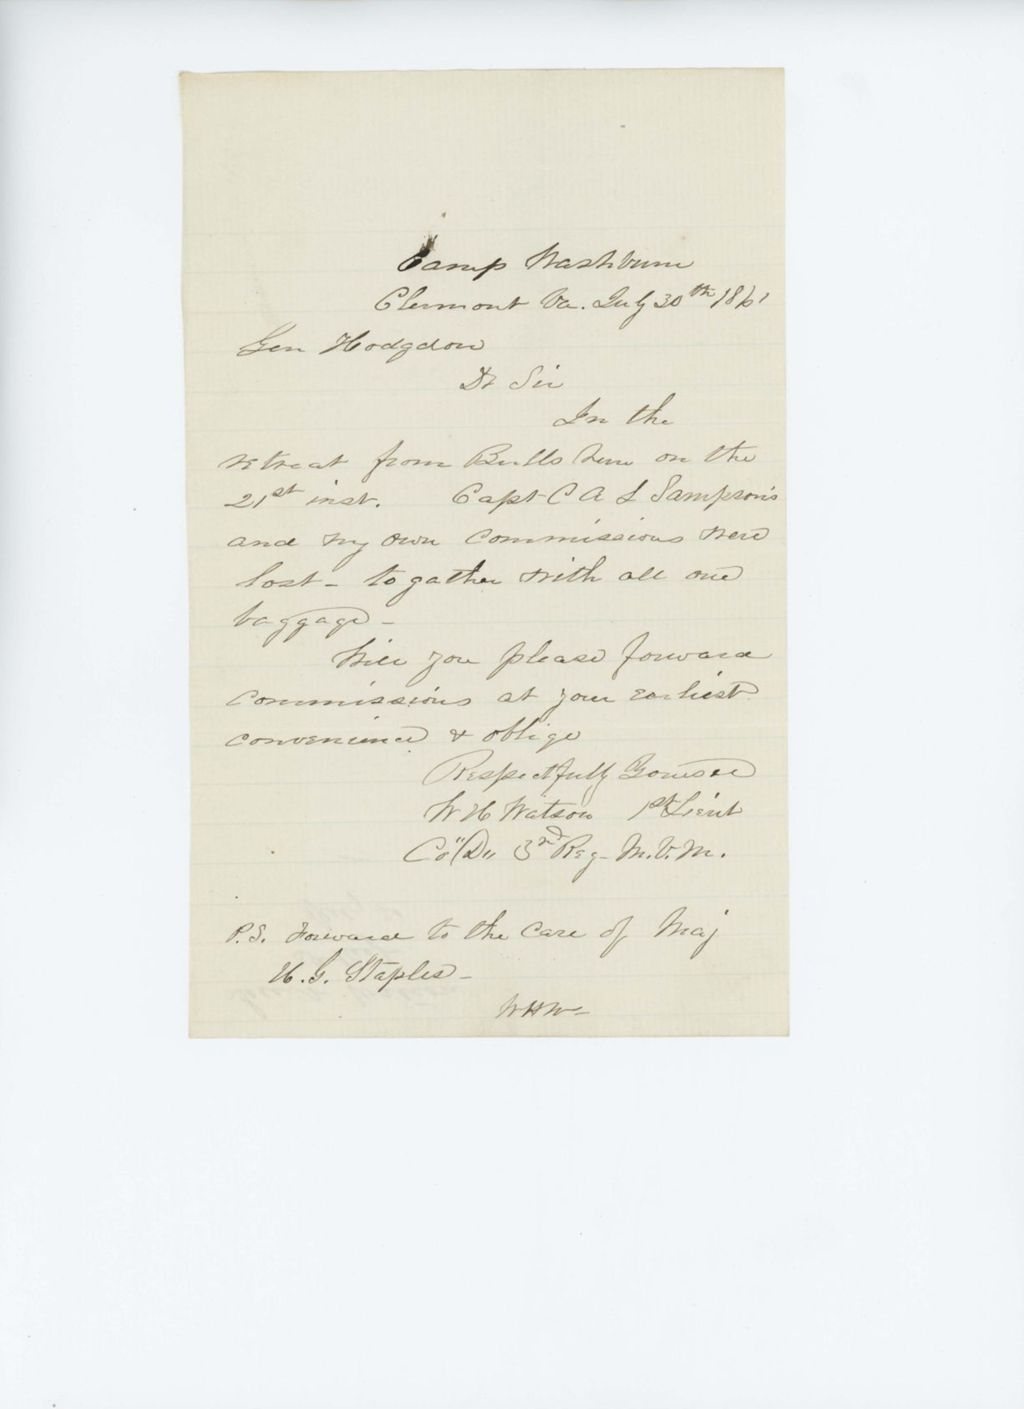 Camp Washburn
Clermont Va. July 30th 1861
Gen Hodgdon
Dr Sir
In the
retreat from Bulls Run on the
21st inst. Capt C A L Sampson's
and my own Commissions were
lost - togather with all our
baggage -
Will you please forward
commissions at your earliest
convenience & oblige
Respectfully Yours &c
W H Watson 1st Lieut
Co "D" 3rd Reg - M.V.M.
P.S. Forward to the care of Maj
H. G. Staples -
WHW -